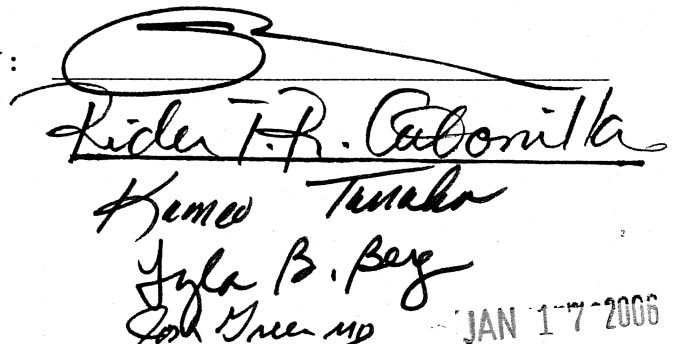 :
Rida T.R. Cabanilla
Kameo Tanaka
Lyla B. Berg
2
Josh Green MD JAN 17 2006